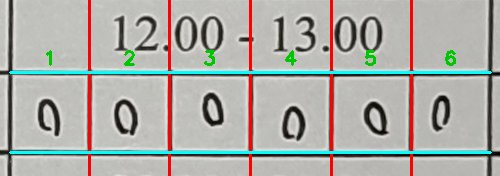 12.00 - 13.00
1 2 3 4 5 6
0 0 0 0 0 0